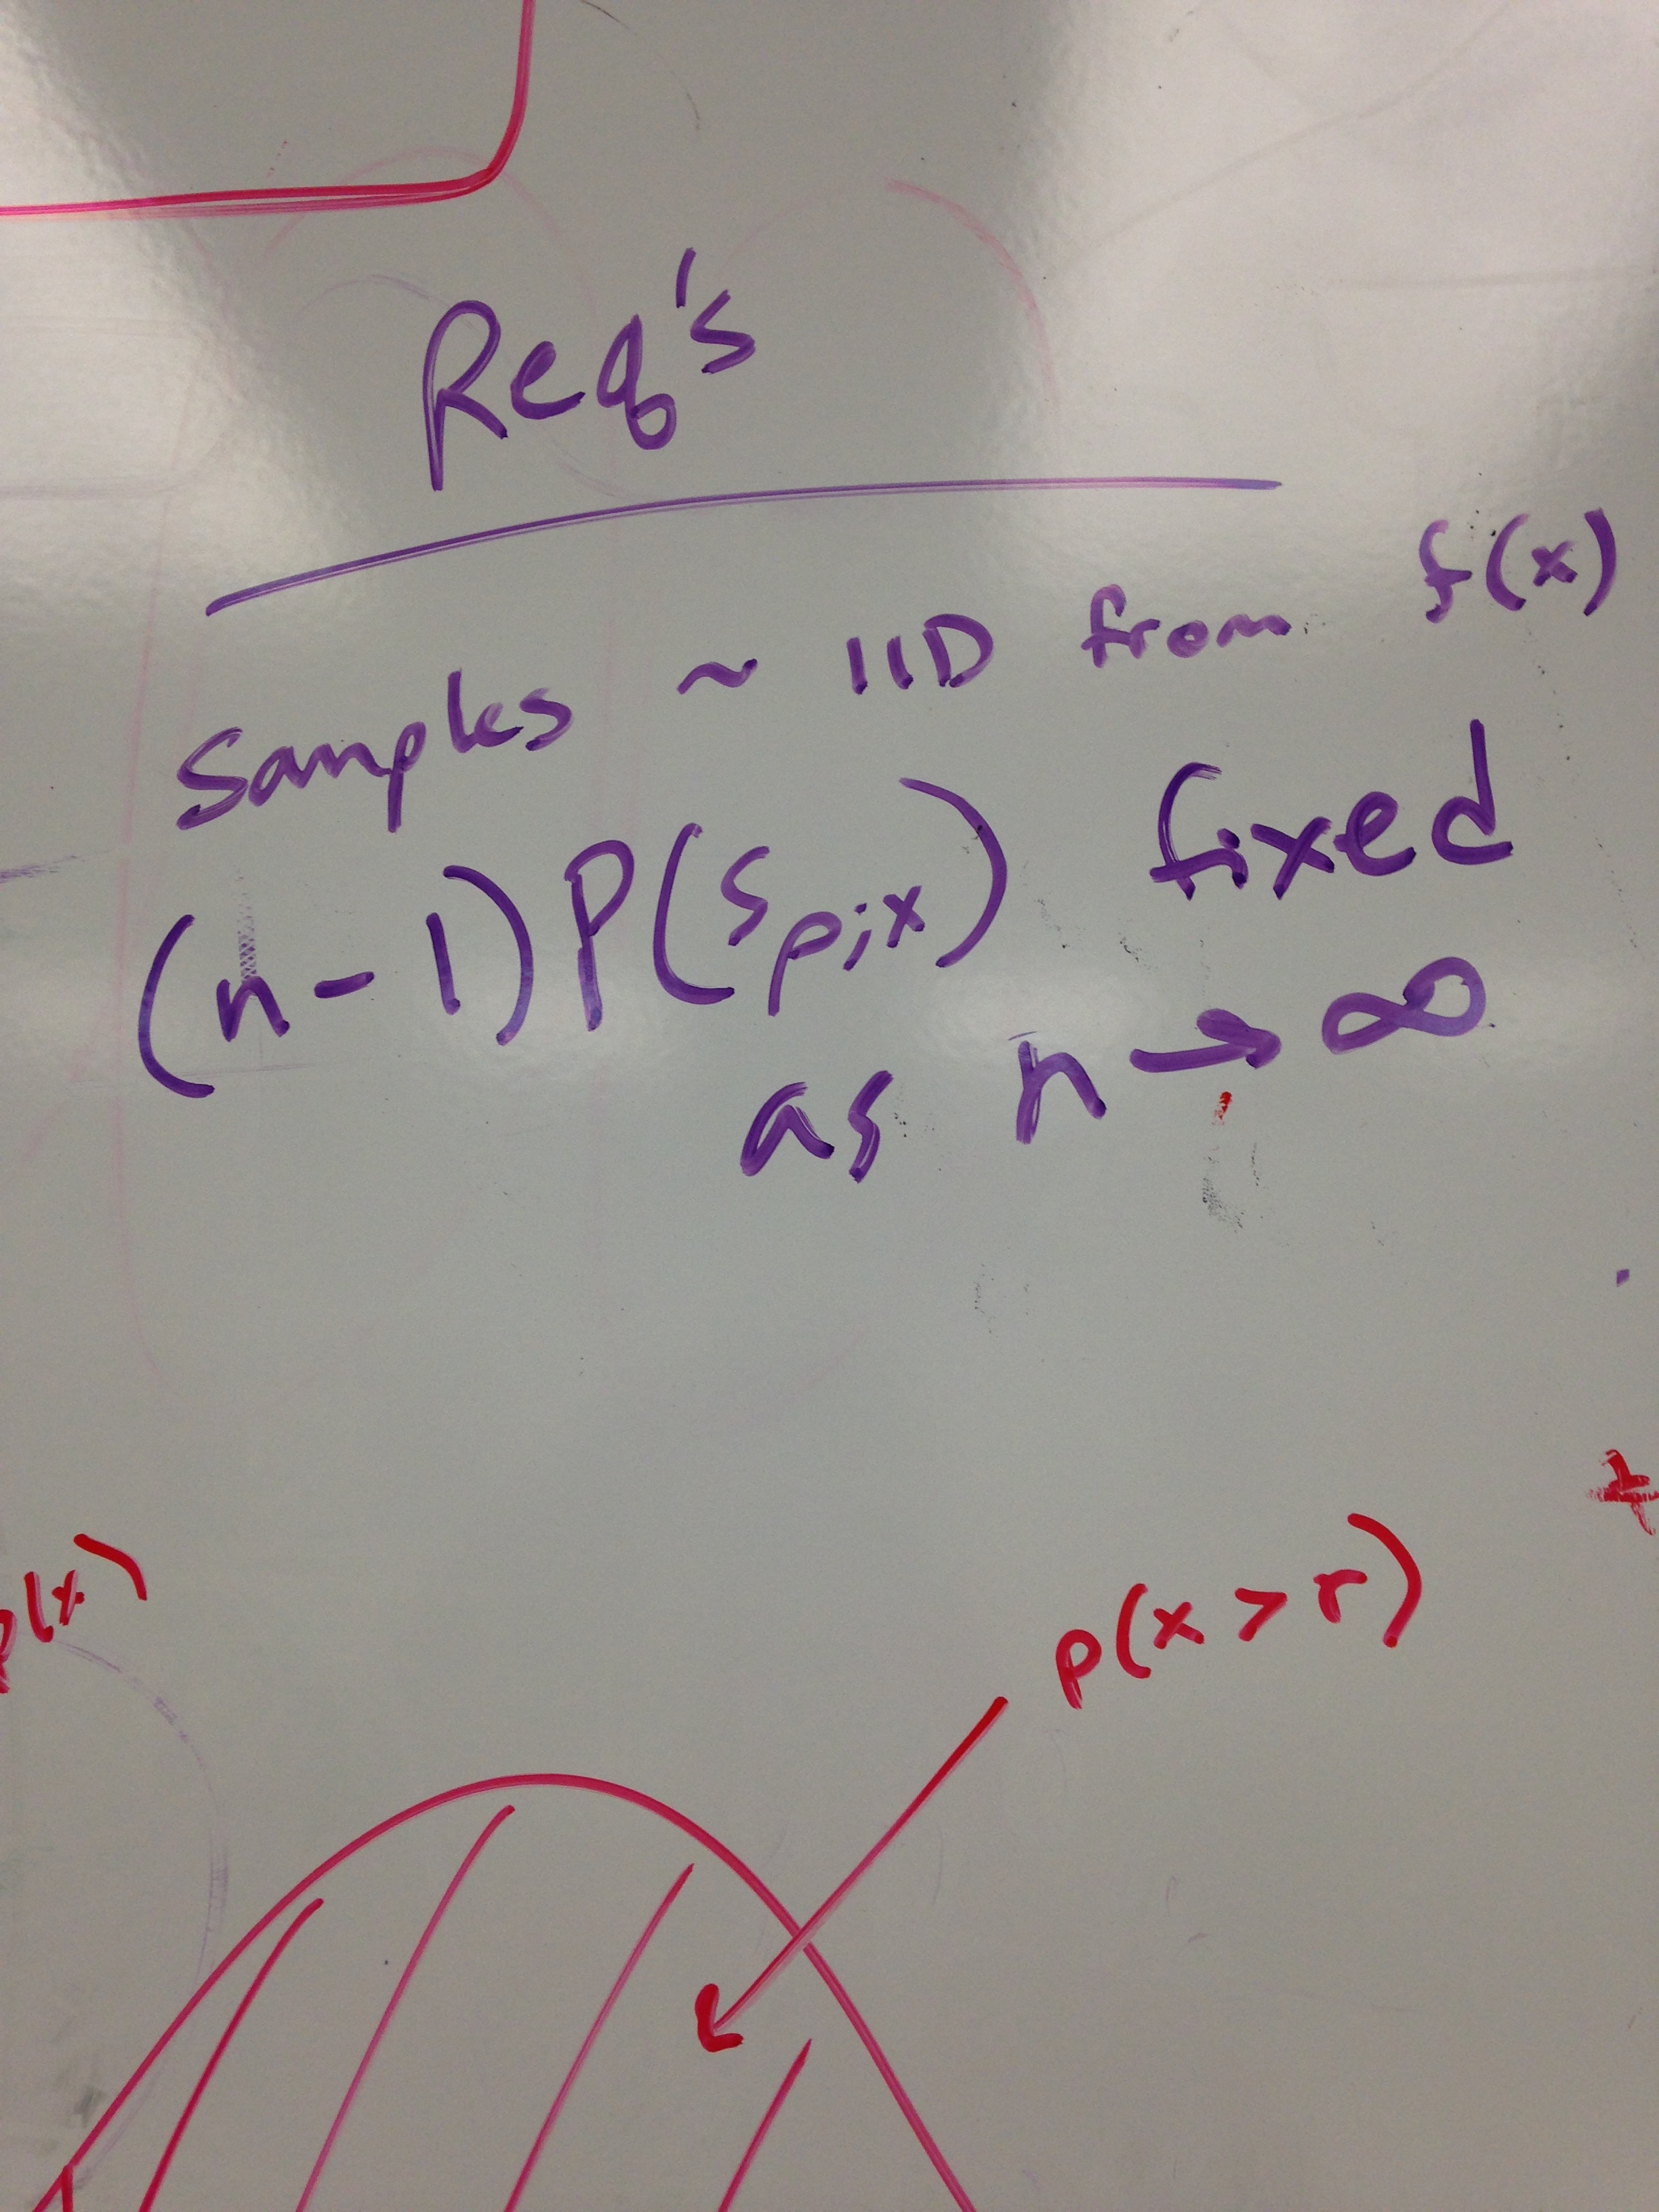 Req's
Samples ~ IID from f(x)
(n-1)P(S_{p;x}) fixed
as n → ∞
p(x)
p(x > r)